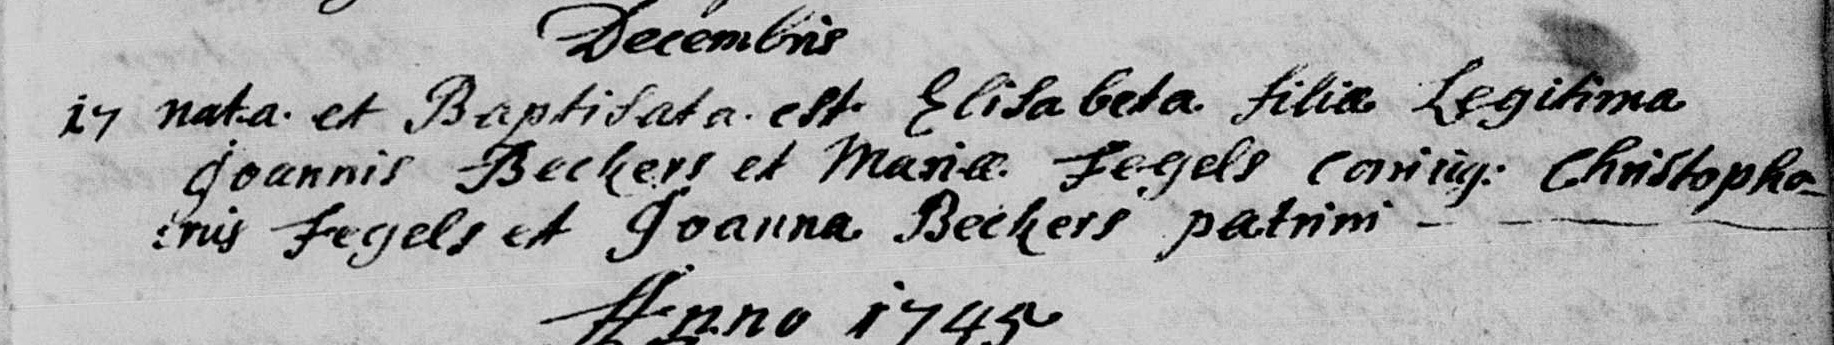 Decembris
17 nata et Baptisata est Elisabeta filia Legitima
Joannis Beckers et Mariæ Fegels coniug: Christopho-
rus Fegels et Joanna Beckers patrini
Anno 1745